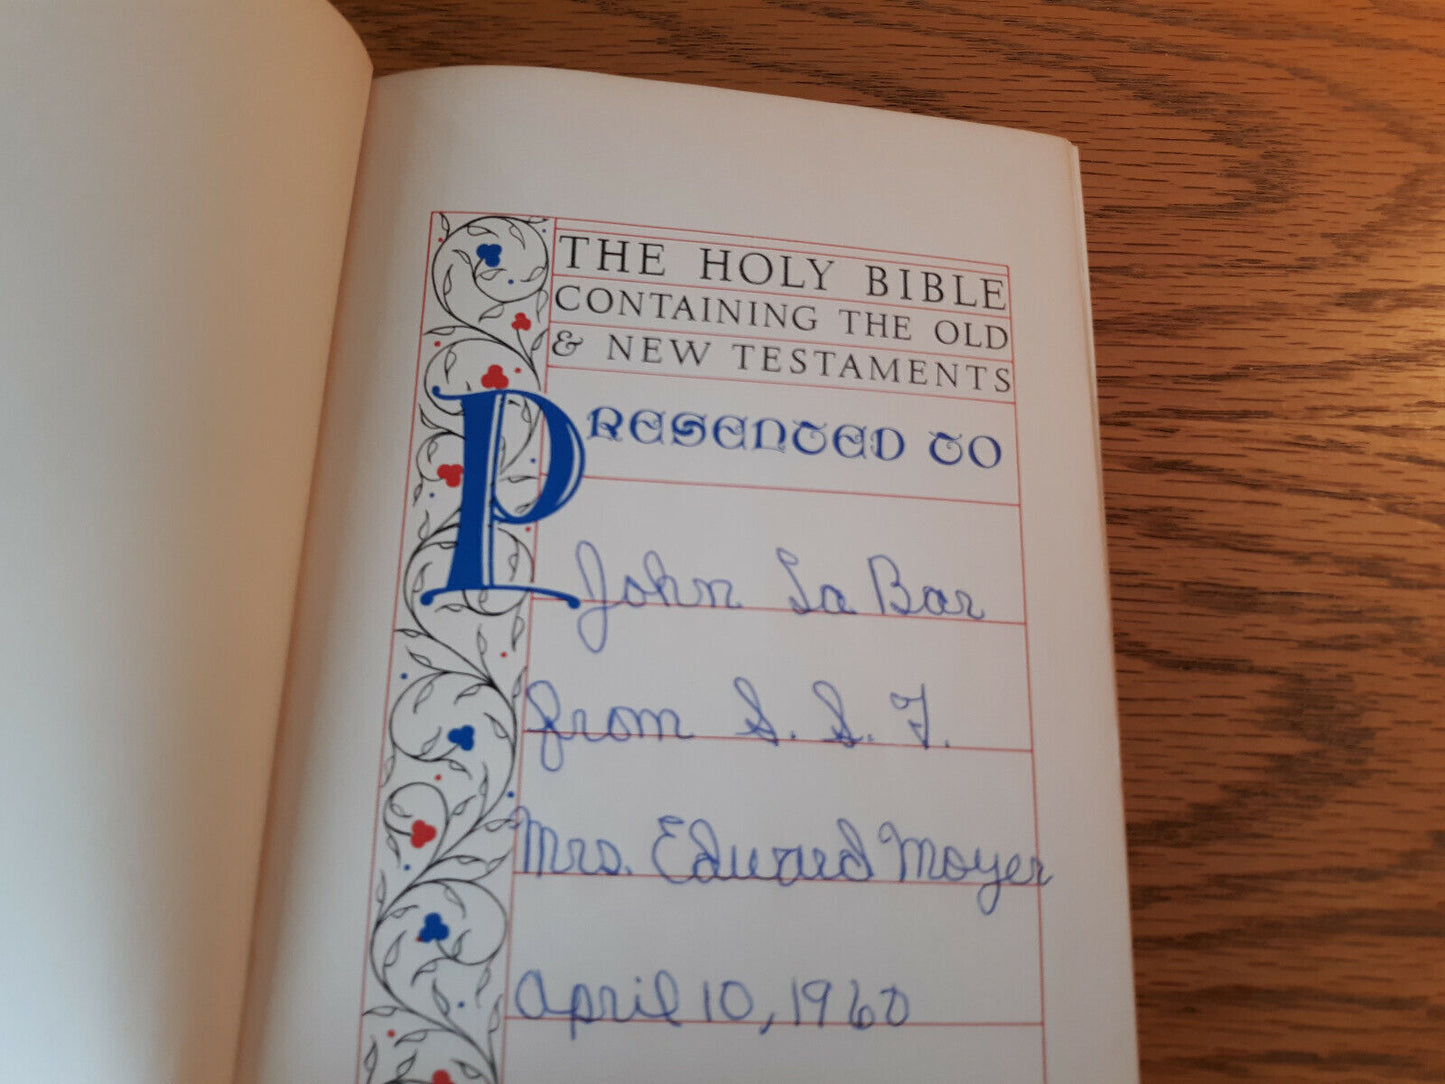 THE HOLY BIBLE
CONTAINING THE OLD
& NEW TESTAMENTS
PRESENTED TO
John La Bar
from S. S. T.
Mrs. Edward Moyer
April 10, 1960